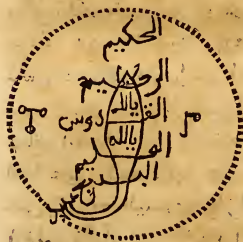 الحكيم
الرحيم
يالله
القدوس
يالله
العليم